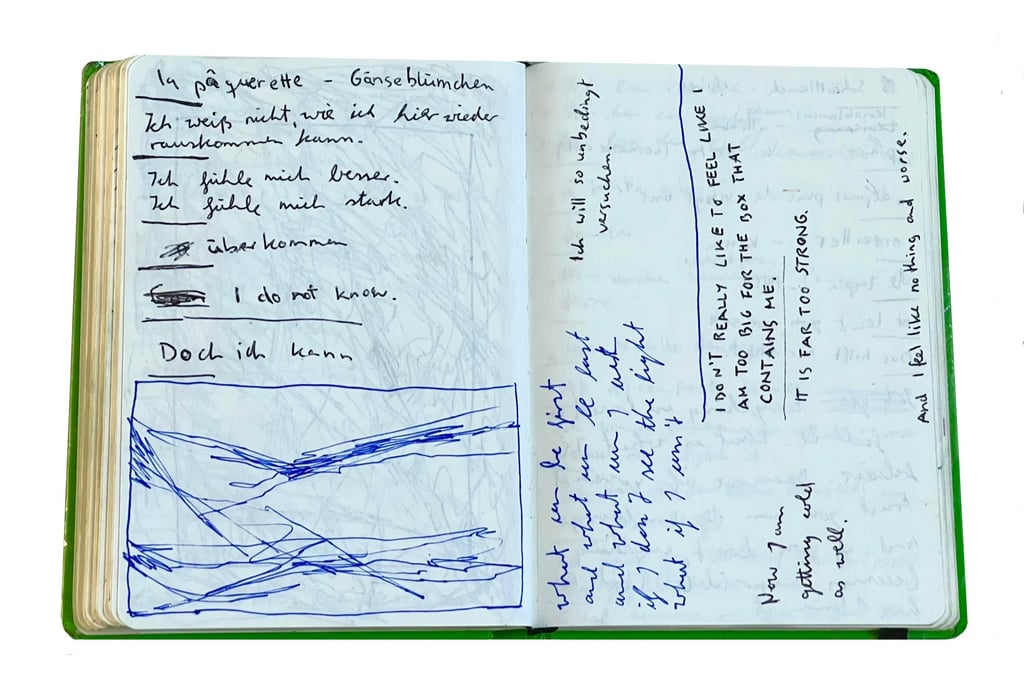 la pâquerette – Gänseblümchen
Ich weiß nicht, wie ich hier wieder
rauskommen kann.
Ich fühle mich besser.
Ich fühle mich stark.
überkommen
I do not know.
Doch ich kann
what can be first
and what can be last
and what can I ask
if I don't see the light
what if I can't
Ich will so unbedingt
versuchen.
I DON'T REALLY LIKE TO FEEL LIKE I
AM TOO BIG FOR THE BOX THAT
CONTAINS ME.
IT IS FAR TOO STRONG.
Now I am
getting cold
as well.
And I feel like nothing and worse.